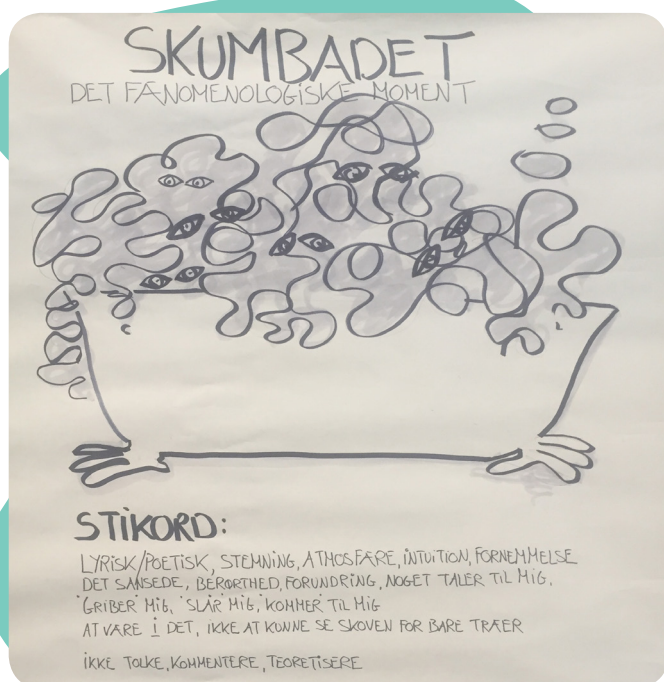 SKUMBADET
DET FÆNOMENOLOGISKE MOMENT
STIKORD:
LYRISK/POETISK, STEMNING, ATMOSFÆRE, INTUITION, FORNEMMELSE
DET SANSEDE, BERØRTHED, FORUNDRING, NOGET TALER TIL MIG.
'GRIBER' MIG, 'SLÅR' MIG, 'KOMMER' TIL MIG
AT VÆRE I DET, IKKE AT KUNNE SE SKOVEN FOR BARE TRÆER
IKKE TOLKE, KOMMENTERE, TEORETISERE